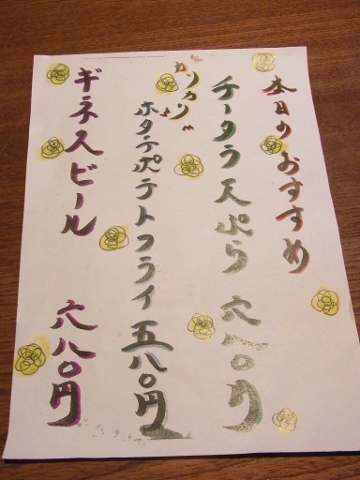 本日のおすすめ
チータラ天ぷら 六八〇円
カリカリ
ホタテポテトフライ 五八〇円
ギネスビール 六八〇円